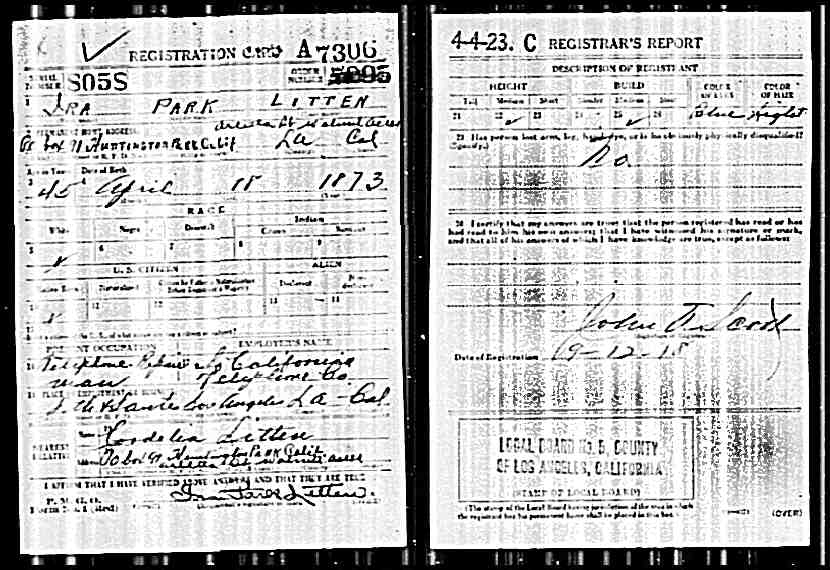 REGISTRATION CARD A7306
SERIAL NUMBER S05S
ORDER NUMBER 5095
1 IRA PARK LITTEN
2 PERMANENT HOME ADDRESS
box 91 HUNTINGTON Park Calif LA Cal
Age in Years Date of Birth
3 45 April 18 1873
RACE
White Negro Oriental Indian
Citizen
5 6 7 8 9
U. S. CITIZEN ALIEN
Native Born Naturalized Declared
12 13 14
PRESENT OCCUPATION EMPLOYER'S NAME
16 Telephone Repair So California
man Telephone Co
PLACE OF EMPLOYMENT OR BUSINESS
Los Angeles LA - Cal.
NEAREST RELATIVE Name Cordelia Litten
Address Po box 91 Huntington Park Calif
I AFFIRM THAT I HAVE VERIFIED ABOVE ANSWERS AND THAT THEY ARE TRUE
P. M. G. O.
Form No. 1 (Red)
Ira Park Litten.
4-4-23. C REGISTRAR'S REPORT
DESCRIPTION OF REGISTRANT
HEIGHT BUILD COLOR OF EYES COLOR OF HAIR
Tall Medium Short Slender Medium Stout
21 22 23 24 25 26 Blue Light
29 Has person lost arm, leg, hand, eye, or is he obviously physically disqualified?
(Specify.)
No
30 I certify that my answers are true; that the person registered has read or has
had read to him his own answers; that I have witnessed his signature or mark,
and that all of his answers of which I have knowledge are true, except as follows:
John
Date of Registration 9-12-18
LOCAL BOARD No. 5, COUNTY
OF LOS ANGELES, CALIFORNIA
(STAMP OF LOCAL BOARD)
(The stamp of the Local Board having jurisdiction of the area in which
the registrant has his permanent home shall be placed in this box.)
(OVER)